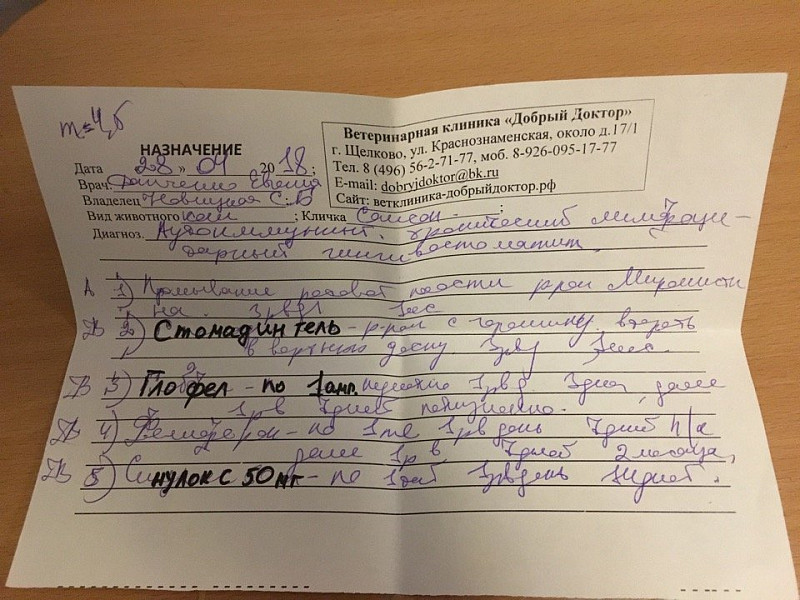 m=4,6
Ветеринарная клиника «Добрый Доктор»
г. Щелково, ул. Краснознаменская, около д.17/1
Тел. 8 (496) 56-2-71-77, моб. 8-926-095-17-77
E-mail: dobryjdoktor@bk.ru
Сайт: ветклиника-добрыйдоктор.рф
НАЗНАЧЕНИЕ
Дата 28 » 04 20 18;
Врач: Евгения
Владелец Новицкая С.В
Вид животного кот ; Кличка Самсон ;
Диагноз. Аутоиммунит. хронический лимфаци-
тарный гингивостоматит.
1) Промывание ротовой полости р-ром Мирамисти
на. 3рвд 1мес
2) Стомадин гель - р-ром с горошину. втереть
в верхнюю десну. 1мес.
3) Глофел - по 1амп. 1рвд. 3дня, далее
1р в 7дней пожизненно.
4) - по 1мл 1рвдень 7дней п/к
далее 1р в 7дней 2месяца,
5) Синулокс 50мг - по 1таб день дней.